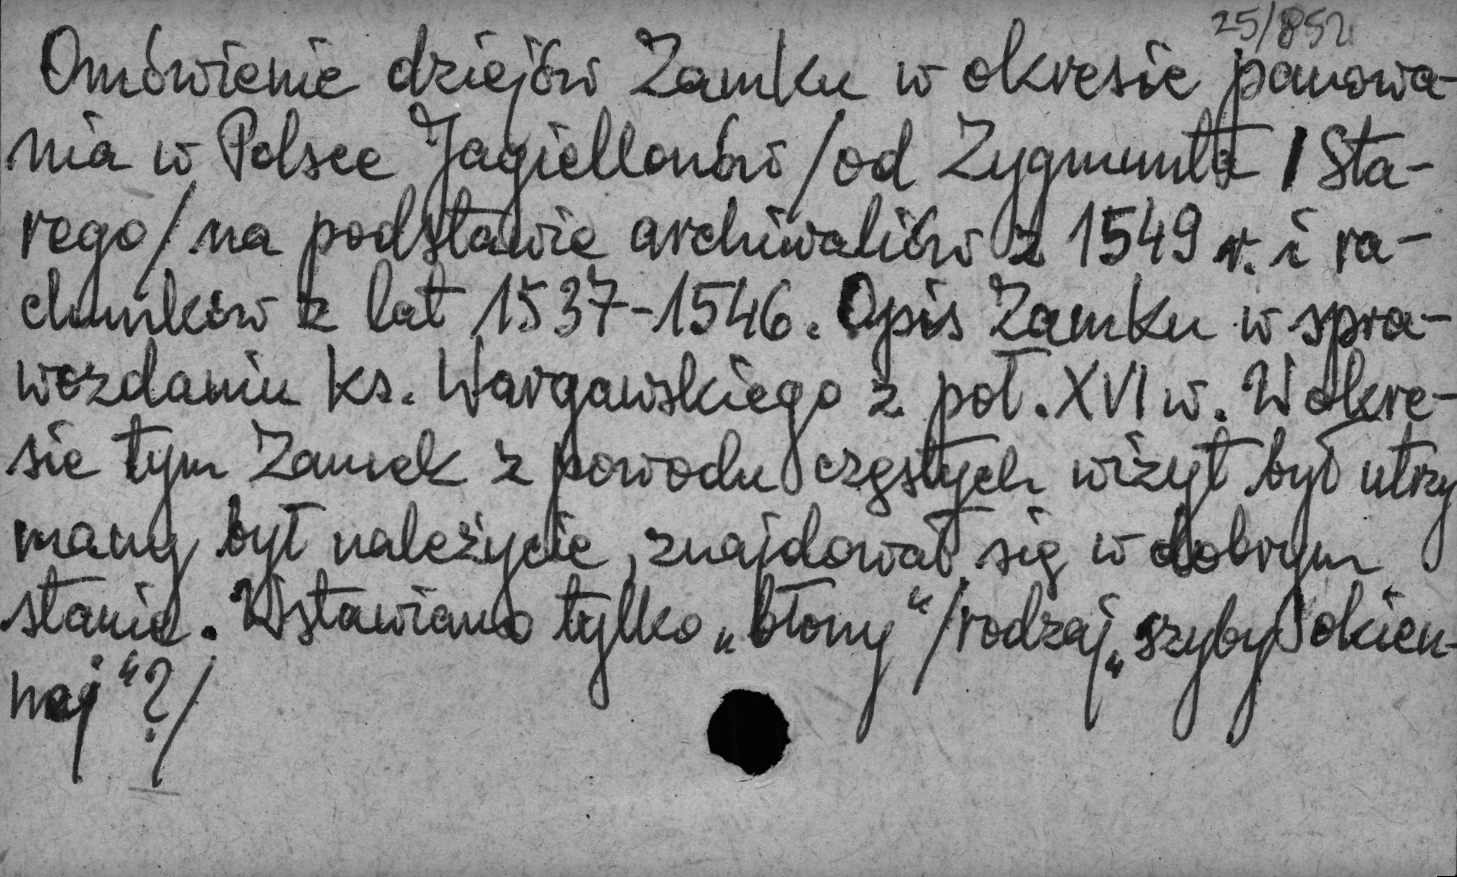 25/852
Omówienie dziejów Zamku w okresie panowa-
nia w Polsce Jagiellonów /od Zygmunta I Sta-
rego/ na podstawie archiwaliów z 1549 r. i ra-
chunków z lat 1537-1546. Opis Zamku w spra-
wozdaniu ks. Wargawskiego z poł. XVI w. W okre-
sie tym Zamek z powodu częstych wizyt był utrzy
many był należycie, znajdował się w dobrym
stanie. Wstawiano tylko „błony" /rodzaj „szyby okien-
nej"?/